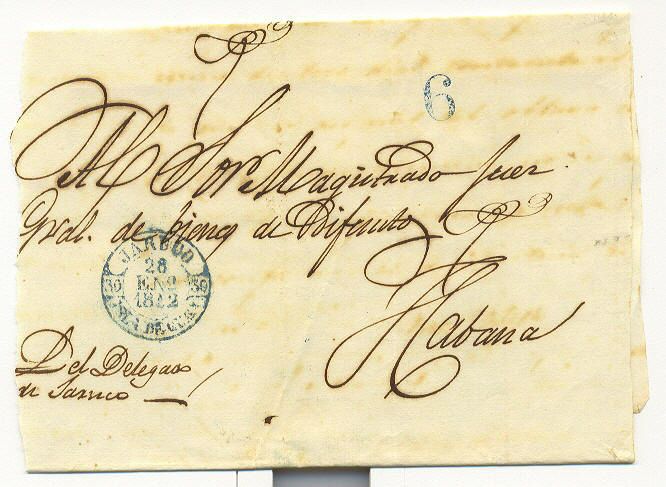 6
Al Sor Magistrado Juez
Gral. de bienes de Difuntos
Habana
JARUCO
28
ENº
1842
39 39
ISLA DE CUBA
Del Delegado
de Jaruco